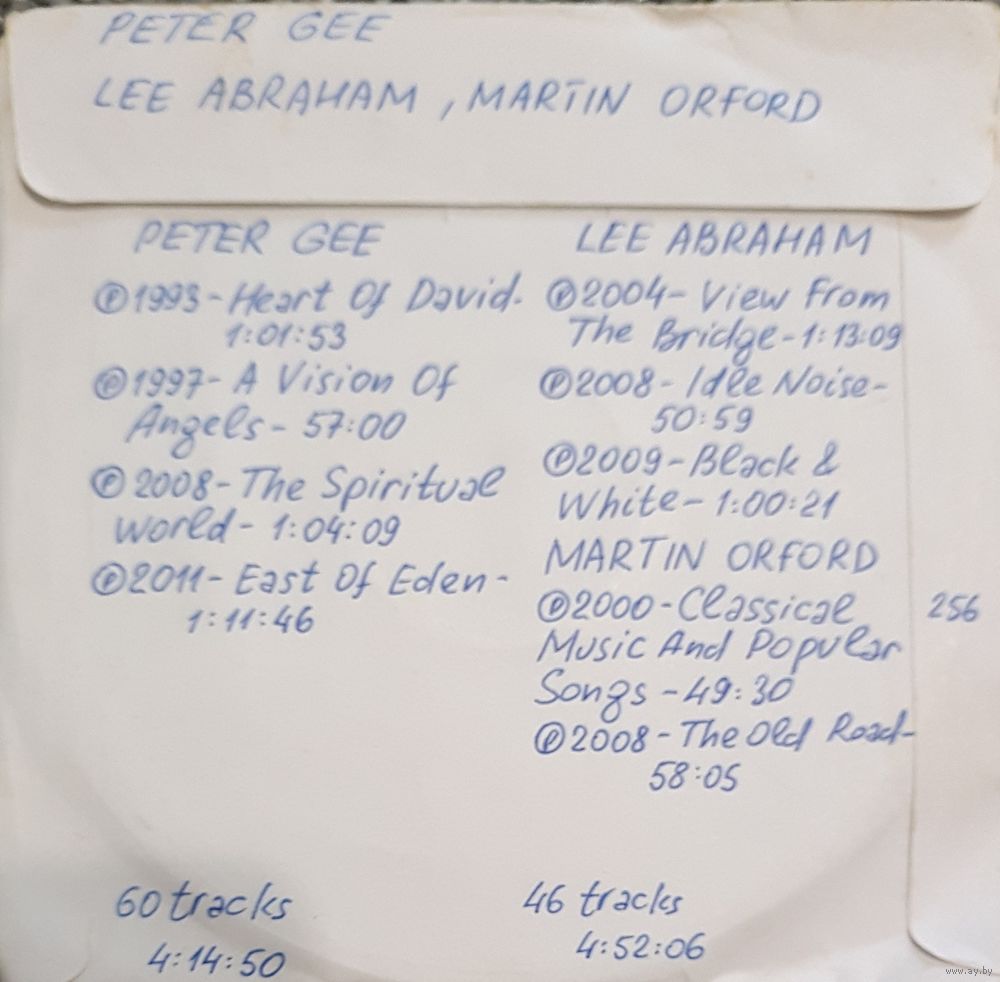 PETER GEE
LEE ABRAHAM, MARTIN ORFORD
PETER GEE
℗1993-Heart Of David-
1:01:53
℗1997-A Vision Of
Angels-57:00
℗2008-The Spiritual
World-1:04:09
℗2011-East Of Eden-
1:11:46
60 tracks
4:14:50
LEE ABRAHAM
℗2004-View From
The Bridge-1:13:09
℗2008-Idle Noise-
50:59
℗2009-Black &
White-1:00:21
MARTIN ORFORD
℗2000-Classical
Music And Popular
Songs-49:30
℗2008-The Old Road-
58:05
46 tracks
4:52:06
256
www.ay.by